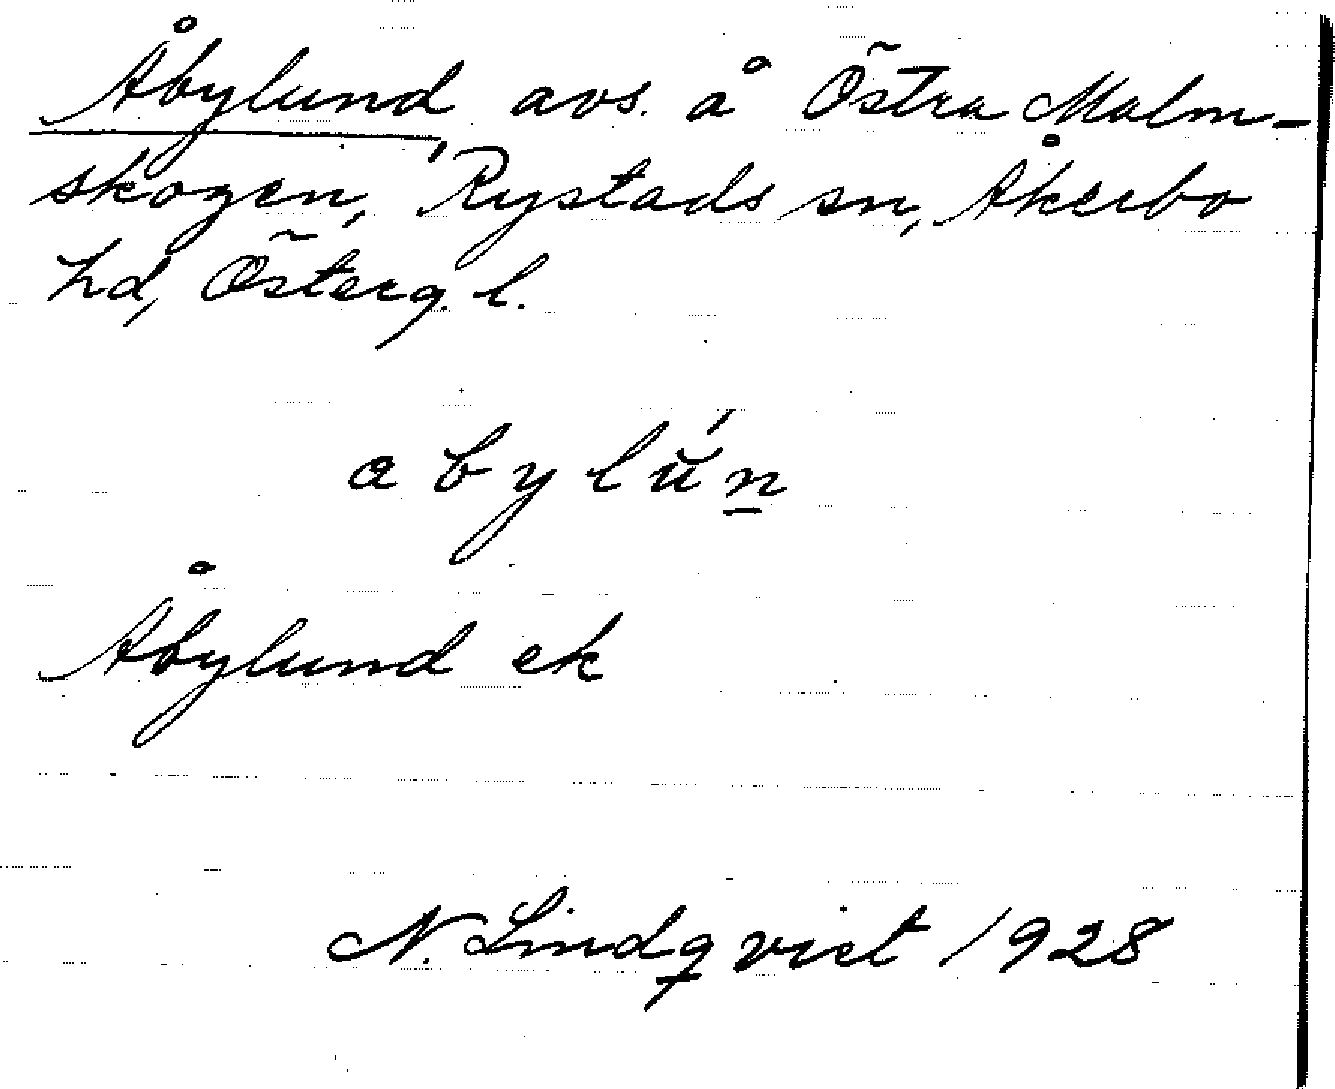 Åbylund, avs. å Östra Malm-
skogen, Rystads sn, Åkerbo
hd, Österg. l.
a b y l ú n
Åbylund ek
N. Lindqvist 1928